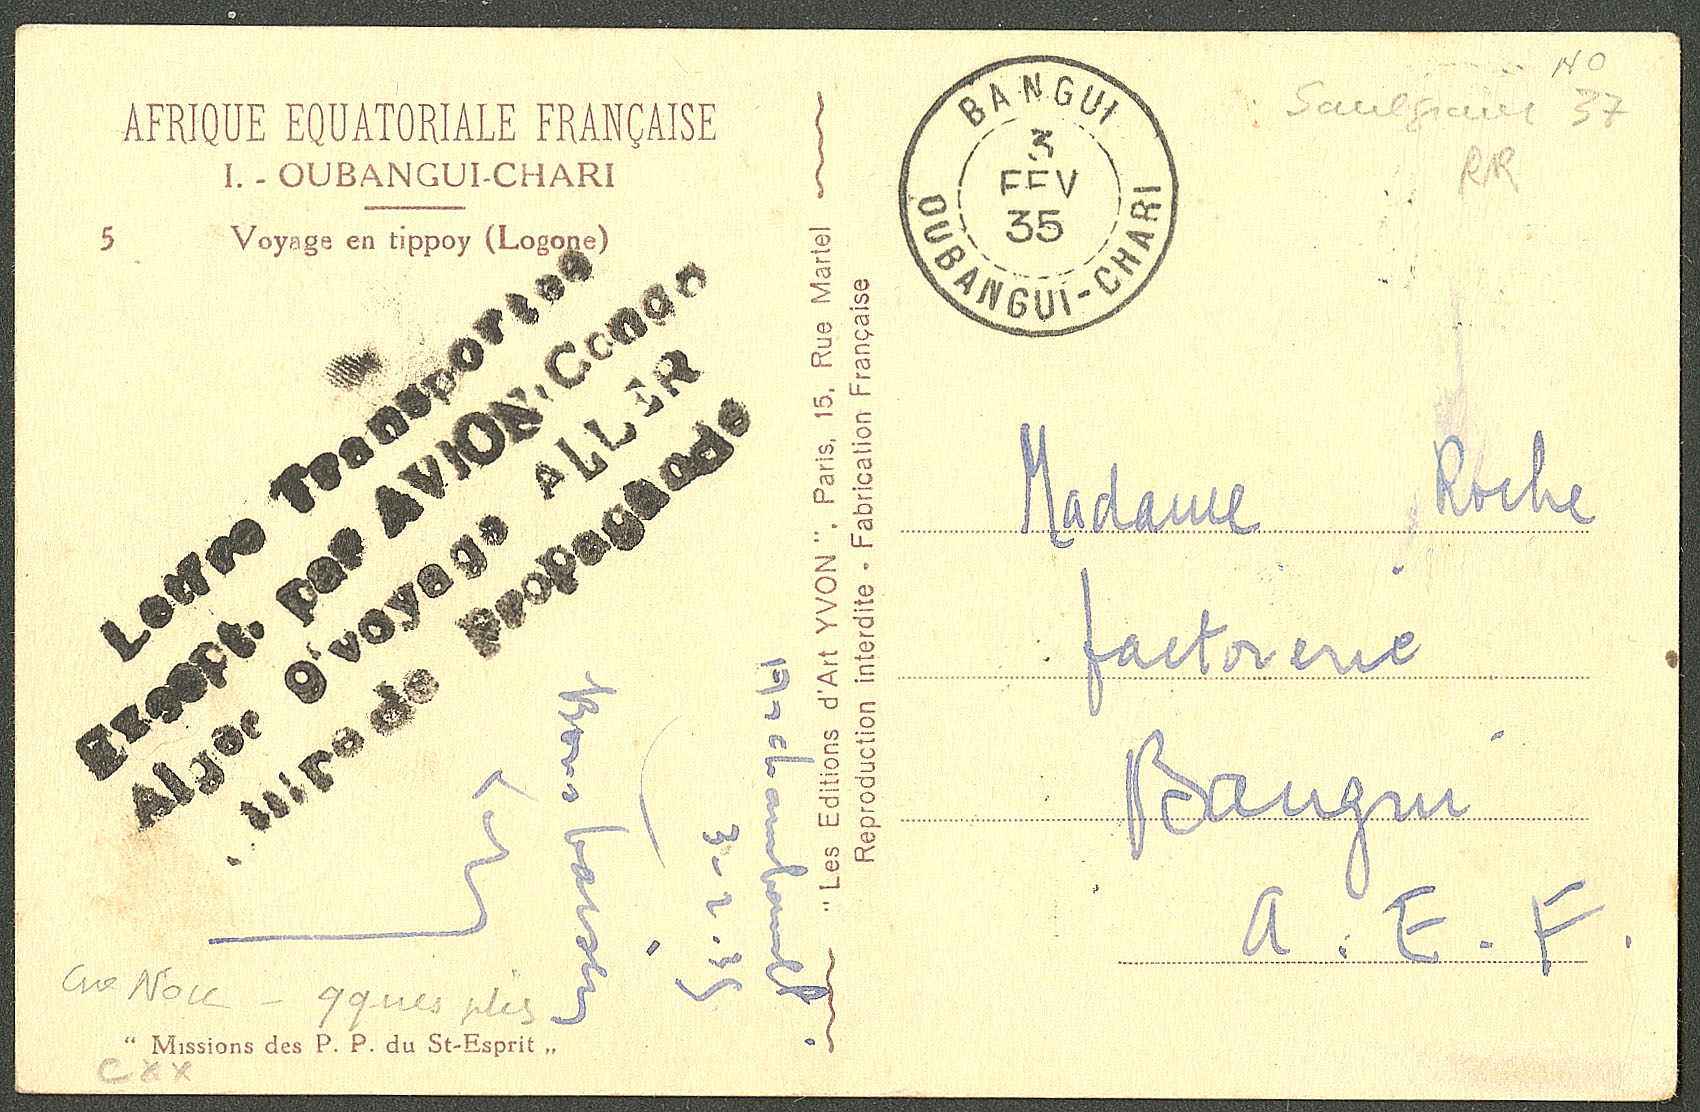 AFRIQUE EQUATORIALE FRANÇAISE
I. - OUBANGUI-CHARI
5 Voyage en tippoy (Logone)
Lettre Transportee
Except. par AVION Congo
Alger 9'voyage ALLER
de Propagande
Fort Archambault
3-2-35
Bons baisers
qques plis
" Missions des P. P. du St-Esprit „
cxx
" Les Editions d'Art YVON ", Paris, 15, Rue Martel
Reproduction interdite - Fabrication Française
BANGUI
3
FEV
35
OUBANGUI-CHARI
NO
37
RR
Madame Roche
factorerie
Bangui
A. E. F.